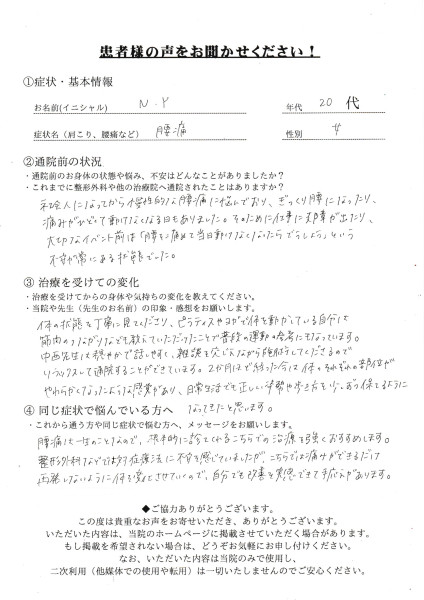 患者様の声をお聞かせください！
①症状・基本情報
お名前(イニシャル) N.Y 年代 20 代
症状名（肩こり、腰痛など） 腰痛 性別 女
②通院前の状況
・通院前のお身体の状態や悩み、不安はどんなことがありましたか？
・これまでに整形外科や他の治療院へ通院されたことはありますか？
社会人になってから慢性的な腰痛に悩んでおり、ぎっくり腰になったり、
痛みがひどくて動けなくなる日もありました。そのために仕事に支障が出たり、
大切なイベント前は「腰を痛めて当日動けなくなったらどうしよう」という
不安が常にある状態でした。
③ 治療を受けての変化
・治療を受けてからの身体や気持ちの変化を教えてください。
・当院や先生（先生のお名前）の印象・感想をお願いします。
体の状態を丁寧に見てくださり、ピラティスやヨガで体を動かしている自分は
筋肉のつながりなども教えていただけたことで普段の運動の参考にもなっています。
中西先生は穏やかで話しやすく、雑談を交じえながら施術してくださるので
リラックスして通院することができています。2か月ほど経った今は体のそれぞれの部位が
やわらかくなったような感覚があり、日常生活でも正しい姿勢や歩き方を少しずつ保てるように
なってきたと思います。
④ 同じ症状で悩んでいる方へ
・これから通う方や同じ症状で悩む方へ、メッセージをお願いします。
腰痛は一生のことなので、根本的に診てくれるこちらでの治療を強くおすすめします。
整形外科などでは対症療法に不安を感じていましたが、こちらでは痛みができるだけ
再発しないように体を変化させていくので、自分でも改善を実感できて手応えがあります。
◆ご協力ありがとうございます。
この度は貴重なお声をお寄せいただき、ありがとうございます。
いただいた内容は、当院のホームページに掲載させていただく場合があります。
もし掲載を希望されない場合は、どうぞお気軽にお申し付けください。
なお、いただいた内容は当院のみで使用し、
二次利用（他媒体での使用や転用）は一切いたしませんのでご安心ください。